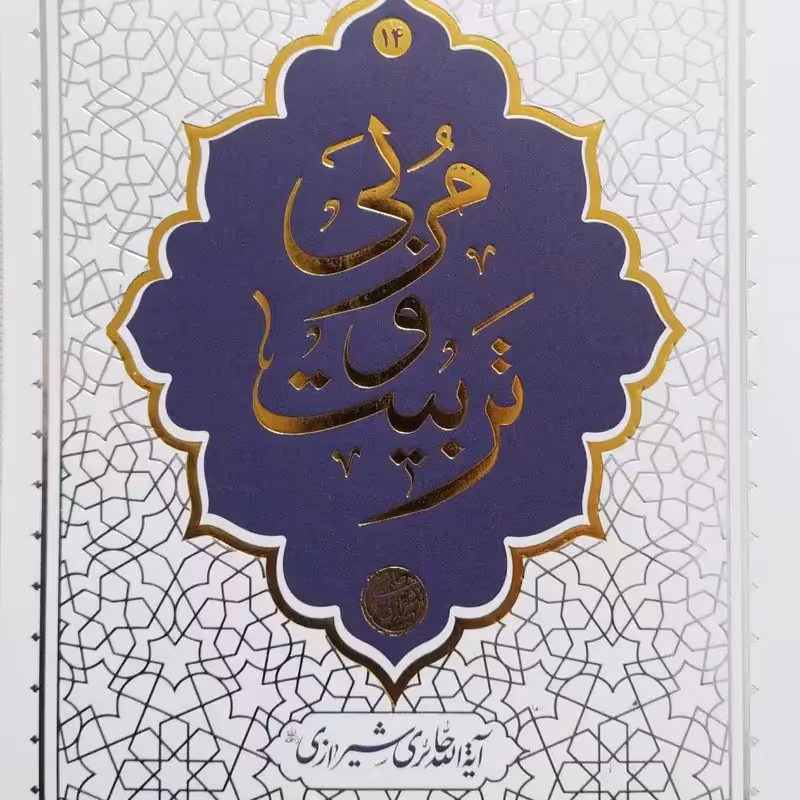 ۱۴
مربّی
و
تربیت
آیة الله حائری شیرازی